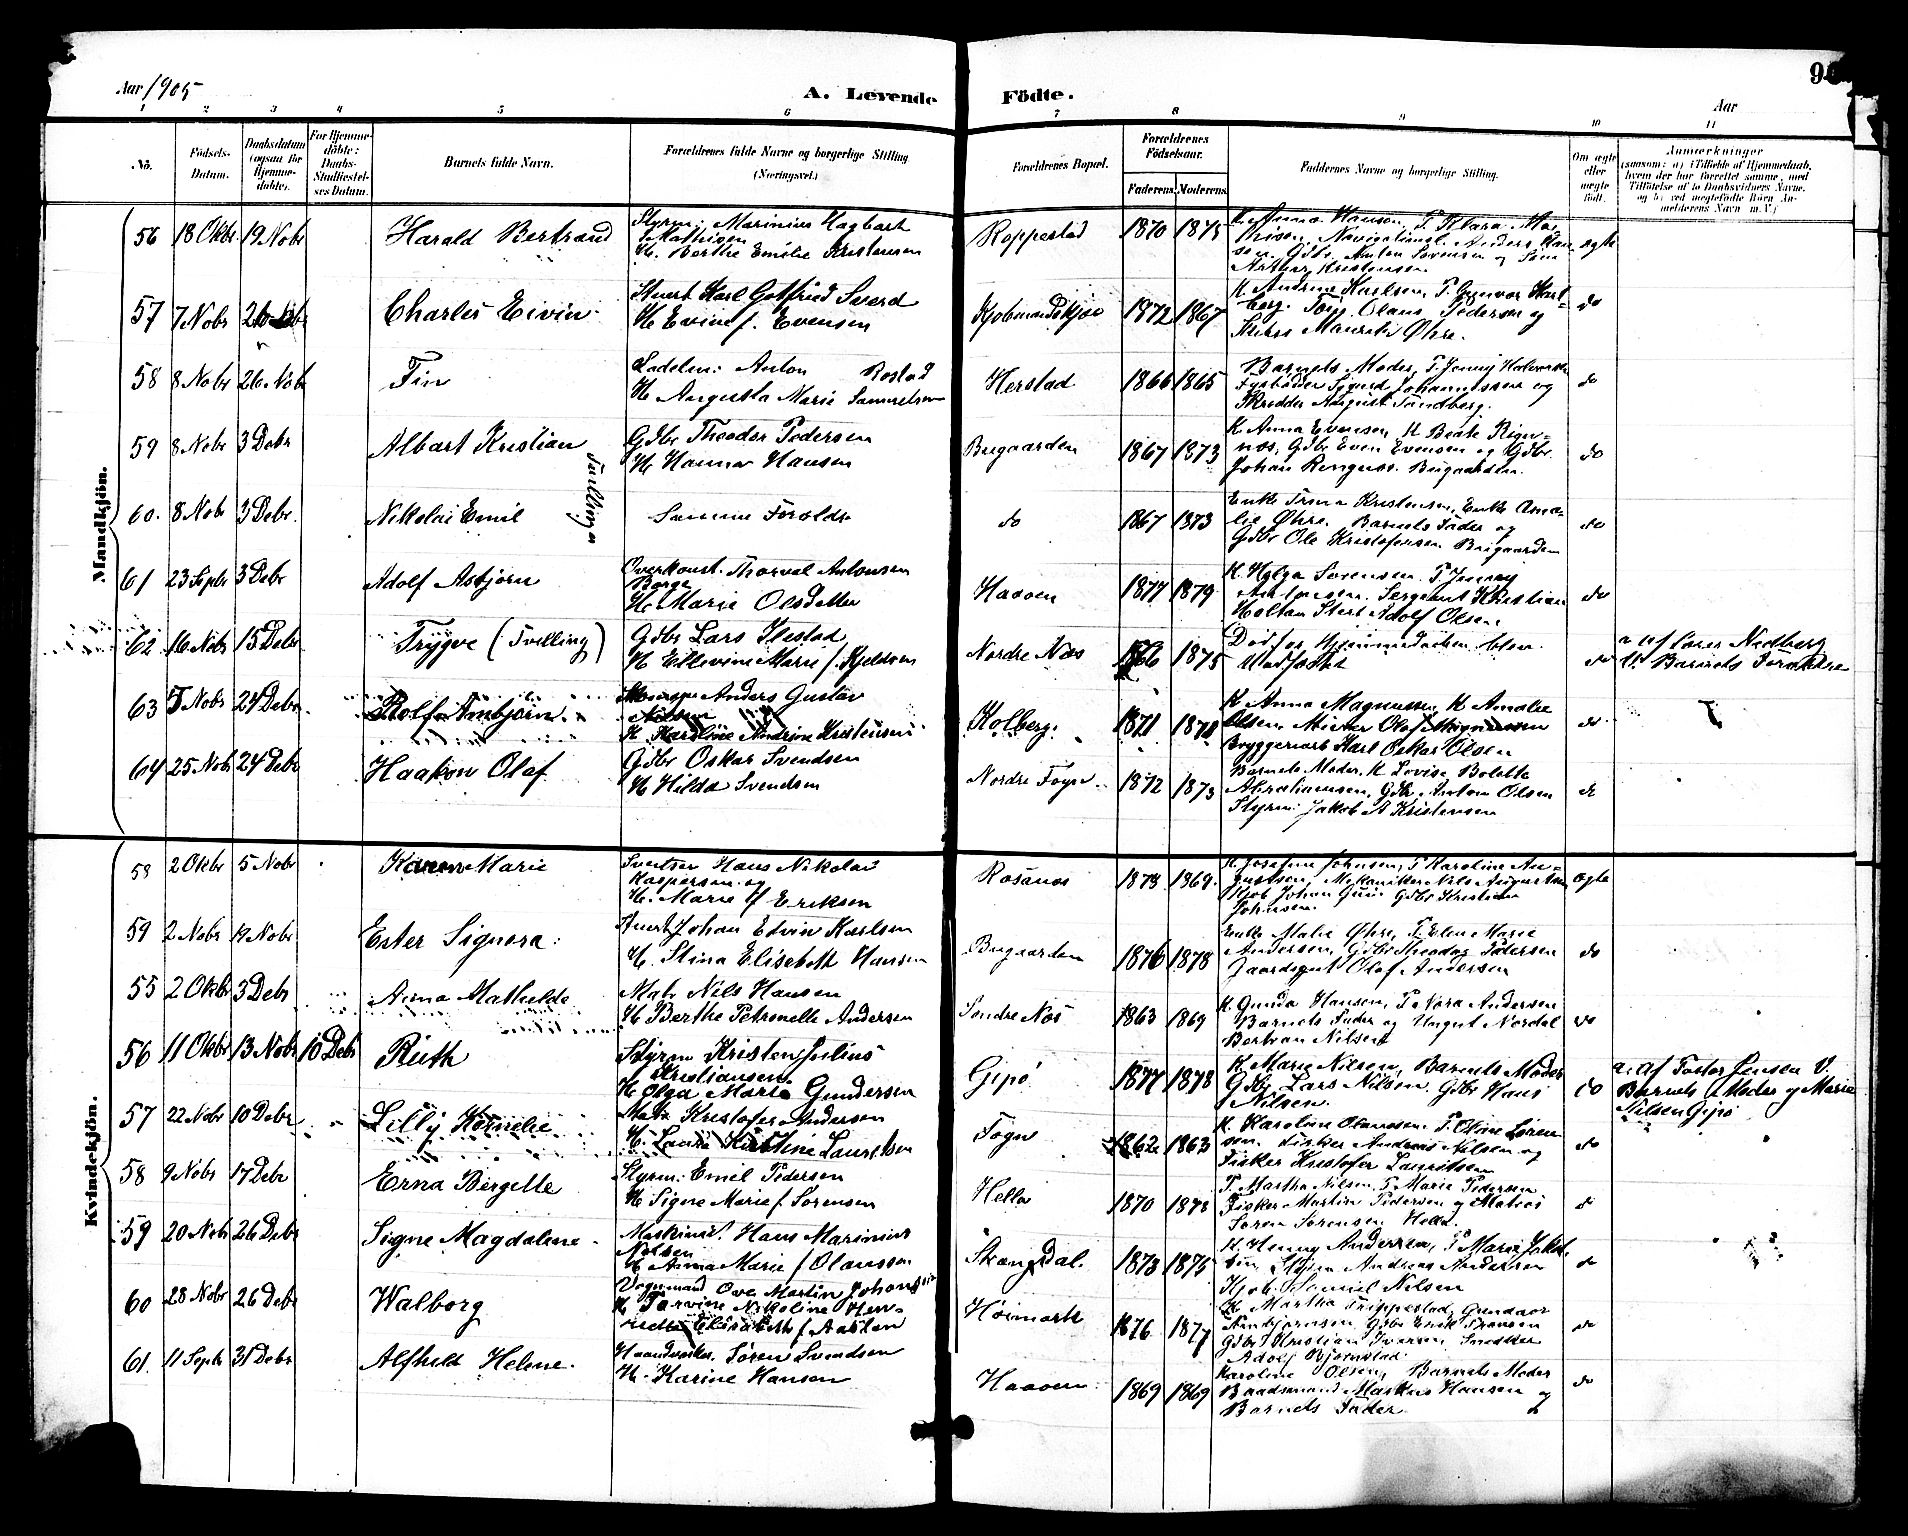 Aar 1905
A. Levende Födte.
90
Aar
1. 2 3 4 5 6 7 8 9 10 11
No. Födsels-Datum. Daabsdatum (ogsaa for Hjemme-döbte). For Hjemme-döbte: Daabs-Stadfæstel-ses Datum. Barnets fulde Navn. Forældrenes fulde Navne og borgerlige Stilling (Næringsvei.) Forældrenes Bopæl. Forældrenes Födselsaar. Faderens. Moderens. Faddernes Navne og borgerlige Stilling. Om ægte eller uægte födt. Anmærkninger
(saasom: a) i Tilfælde af Hjemmedaab, hvem der har forrettet samme, med Tilföielse af to Daabsvidners Navne, og b) ved uægtefödte Börn Anmelderens Navn m. V.)
Mandkjön.
56 18 Oktbr 19 Nobr Harald Bertrand Styrm: Marinius Hagbart
Mathisen
H. Berthe Emilie Kristensen Roppestad 1870 1875 K Anna Hansen, P. Klara Ma-
thisen, Navigationsl. Anders Han-
sen, Gdbr Anton Sørensen og Søm
Arthur Kristensen ægte
57 7 Nobr 26 Charles Eivin Stuert Karl Gotfried Sverd
H Evine f. Evensen Kjøbmandskjær 1872 1867 K Andrine Karlsen, P. Gunvor Karl-
berg. Tøm. Olaus Pedersen og
Mauritz Øhre. do
58 8 Nobr 26 Nobr Fin Sadelm: Anton Rostad
H Augusta Marie Samuelsen Herstad 1866 1865 Barnets Moder, P. Jenny Halvorsen
Sigurd Johannessen og
Skrædder August Sundberg. do
59 8 Nobr 3 Debr Albart Kristian Gdbr Theodor Pedersen
H Hanna Hansen Bugaarden 1867 1873 K Anna Evensen, K Beate Ring-
næs, Gdbr Even Evensen og Gdbr
Johan Ringnæs. Bugaarden do
Tvillinger
60. 8 Nobr 3 Debr. Nikolai Emil Samme Foroldr do 1867 1873 Enke Trina Kristensen, Enke Ama-
lie Øhre. Barnets Fader og
Gdbr Ole Kristofersen. Bugaarden do
61 23 Septr 3 Debr Adolf Asbjørn Overkonst. Thorval Antonsen
Borge
H. Marie Olsdatter Haaven 1877 1879 K. Helga Sørensen. P. Jenny
Antonsen. Sergeant Kristian
Holtan Stert Adolf Olsen do
62 16 Nobr 15 Debr Trygve (Tvilling) Gdbr Lars Ilestad
H Ellevine Marie f. Kjeldsen Nordre Næs 1875 Død før Hjemmedaaben blev
stadfæstet do a. af Lærer Nedberg
V. Barnets Forældre
63 5 Nobr 24 Debr Rolf Arnbjørn Anders Gustav
Nilsen
H Karoline Andrine Kristensen Kolberg. 1871 1871 K Anna Magnussen, K Amalie
Olsen, Murer Olaf Magnussen
Bryggeriarb Karl Oskar Olsen do
64 25 Nobr 24 Debr Haakon Olaf Gdbr Oskar Svendsen
H Hilda Svendsen Nordre Føyn 1872 1873 Barnets Moder, K Lovise Bolette
Abrahamsen, Gdbr Anton Olsen
Styrm: Jakob A Kristensen do
Kvindekjön.
53 2 Oktbr 5 Nobr Karen Marie Hans Nikolai
Kaspersen og
H. Marie f Eriksen Rosanes 1873 1869. K. Josefine Johnsen, P Karoline Au-
gustsen, Mekaniker Nils Augustsen
Kjøb Johan Gui Gdbr Kristian
Johnsen ægte
59 2 Nobr 19 Nobr Ester Signora Stuert Johan Edvin Karlsen
H. Stina Elisabeth Hansen Bugaarden 1876 1878 Enke Malie Øhre, P. Elen Marie
Andersen, Gdbr Theodor Pedersen
Gaardsgut Olaf Andersen do
55 2 Oktbr 3 Debr Anna Mathilde Matr Nils Hansen
H Berthe Petronelle Andersen Søndre Næs 1863 1869 K. Gunda Hansen, P Nora Andersen
Barnets Fader og Ungut Nordal
Bertran Nilsen do
56 11 Oktbr 13 Nobr 10 Debr Ruth Styrm Kristen Julius
Kristiansen
H Olga Marie Gundersen Gipø 1877 1878 K Marie Nilsen, Barnets Moder
Gdbr Lars Nilsen, Gdbr Hans
Nilsen. do a. af Pastor Jensen V.
Barnets Moder og Marie
Nilsen Gipø
57 22 Nobr 10 Debr Lilly Kornelie Matr Kristofer Andersen
H. Laura Kirstine Lauretsen Føyn 1862 1863 K Karoline Olaussen. P. Oline Loren-
sen. Fisker Andreas Nilsen og
Fisker Kristofer Lauritsen do
58 9 Nobr 17 Debr Erna Birgitte Styrm: Emil Pedersen
H Signe Marie f. Sørensen Hella 1870 1878 P. Martha Nilsen. P Marie Pedersen
Fisker Martin Pedersen og Matros
Søren Sørensen Hella. do
59 20 Nobr 26 Debr Signe Magdalene Maskinist Hans Marinius
Nilsen
H Anna Marie f Olaussen Skangdal. 1873 1875 K. Henny Andersen, P Marie Jakob-
sen, Styrm Andreas Andersen
Kjøb. Samuel Nilsen do
60 28 Nobr 26 Debr Walborg Vognmand Ove Martin Johansen
H Torvine Nikoline Hen-
riette Elisabeth f Aasten Høimark 1876 1877 K Martha Trippestad, Gunda
Arnbjørnsen, Gdbr Enok Fransen
Gdbr Kristian Iversen Snedker
Adolf Bjørnstad do
61. 11 Septr 31 Debr Alfhild Helene Haandverker Søren Svendsen
H. Karine Hansen Haaven 1869 1869 Karoline Olsen, Barnets Moder
Baadsmand Markus Hansen og
Barnets Fader. do